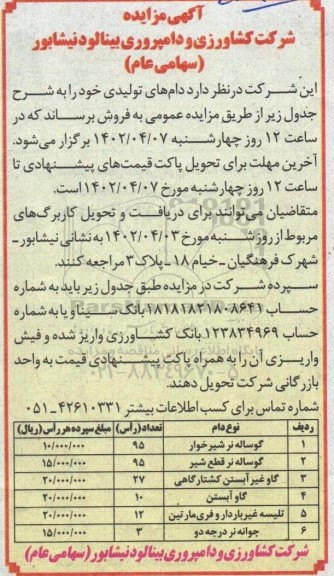 آگهی مزایده
شرکت کشاورزی و دامپروری بینالود نیشابور
(سهامی عام)
این شرکت درنظر دارد دام‌های تولیدی خود را به شرح
جدول زیر از طریق مزایده عمومی به فروش برساند که در
ساعت ۱۲ روز چهارشنبه ۱۴۰۲/۰۴/۰۷ برگزار می‌شود.
آخرین مهلت برای تحویل پاکت قیمت‌های پیشنهادی تا
ساعت ۱۲ روز چهارشنبه مورخ ۱۴۰۲/۰۴/۰۷ است.
متقاضیان می‌توانند برای دریافت و تحویل کاربرگ‌های
مربوط از روز شنبه مورخ ۱۴۰۲/۰۴/۰۳ به نشانی نیشابور -
شهرک فرهنگیان - خیام ۱۸ - پلاک ۳ مراجعه کنند.
سپرده شرکت در مزایده طبق جدول زیر باید به شماره
حساب ۱۸۱۸۱۸۲۱۸۰۸۶۴۱ بانک سینا و یا به شماره
حساب ۱۲۳۸۳۴۹۶۹ بانک کشاورزی واریز شده و فیش
واریزی آن را به همراه پاکت پیشنهادی قیمت به واحد
بازرگانی شرکت تحویل دهند.
شماره تماس برای کسب اطلاعات بیشتر ۴۲۶۱۰۳۳۱-۰۵۱
ردیف نوع دام تعداد (رأس) مبلغ سپرده هر رأس (ریال)
۱ گوساله نر شیرخوار ۹۵ ۱۰/۰۰۰/۰۰۰
۲ گوساله نر قطع شیر ۹۵ ۱۵/۰۰۰/۰۰۰
۳ گاو غیر آبستن کشتارگاهی ۲۷ ۲۰/۰۰۰/۰۰۰
۴ گاو آبستن ۱۰ ۲۰/۰۰۰/۰۰۰
۵ تلیسه غیرباردار و فری‌مارتین ۱۲ ۲۰/۰۰۰/۰۰۰
۶ جوانه نر درجه دو ۳ ۱۵/۰۰۰/۰۰۰
شرکت کشاورزی و دامپروری بینالود نیشابور (سهامی عام)